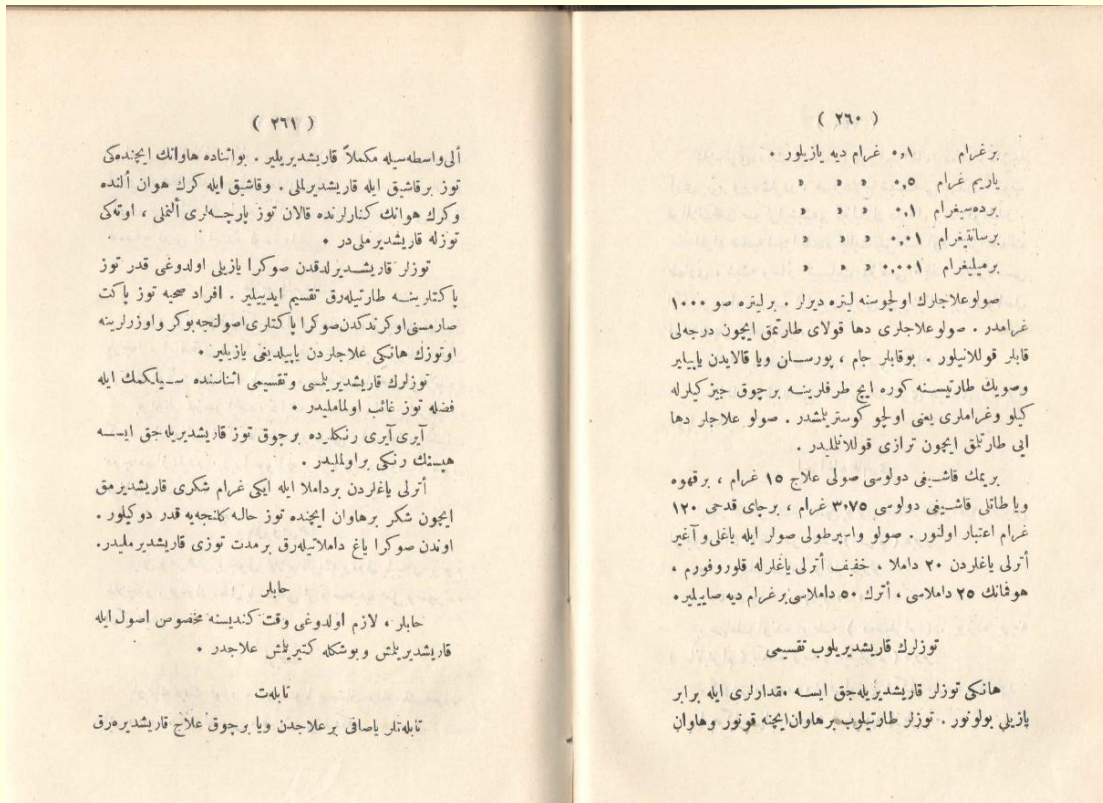 ( ٢٦٠ )
برغرام ٠,١ غرام ديه يازيلور .
ياريم غرام ٠,٥ » » »
بردەسیغرام ٠,١ » » »
برسانتیغرام ٠,٠١ » » »
برمیلیغرام ٠,٠٠١ » » »
صولوعلاجلرك اولچوسنه ليتره ديرلر . برليتره صو ١٠٠٠
غرامدر . صولوعلاجلری دها قولای طارتمق ایچون درجه‌لی
قابلر قوللانیلور . بوقابلر جام ، پورسلان ویا قالایدن یاپیلیر
وصویك طارتیسنه کوره ایچ طرفلرینه برچوق چیز کیلرله
کیلو وغراملری یعنی اولچو کوستریلمشدر . صولو علاجلر دها
ایی طارتلمق ایچون ترازی قوللانملیدر .
بریمك قاشیغی دولوسی صولی علاج ١٥ غرام ، برقهوه
ویا طاتلی قاشیغی دولوسی ٣،٧٥ غرام ، برچای قدحی ١٢٠
غرام اعتبار اولنور . صولو واسپرطولی صولر ایله یاغلی وآغیر
أترلی یاغلردن ٢٠ داملا . خفیف أترلی یاغلرله قلوروفورم ،
هوفمانك ٢٥ داملاسی ، أترك ٥٠ داملاسی برغرام دیه صاییلیر .
توزلرك قاریشدیریلوب تقسیمی
هانکی توزلر قاریشدیریله‌جق ایسه مقدارلری ایله برابر
یازیلی بولونور . توزلر طارتیلوب برهاوان ایچنه قونور وهاوان
( ٢٦١ )
ألی واسطه‌سیله مکملاً قاریشدیریلیر . بواثناده هاوانك ایچنده‌کی
توز برقاشیق ایله قاریشدیرلملی . وقاشیق ایله کرك هوان ألنده
وکرك هوانك کنارلرنده قالان توز پارچه‌لری ألنملی ، اوته‌کی
توزله قاریشدیرملی‌در .
توزلر قاریشدیرلدقدن صوکرا یازیلی اولدوغی قدر توز
پاکتلرینه طارتیله‌رق تقسیم ایدیبلیر . افراد صحیه توز پاکت
صارمسنی اوکرندکدن صوکرا پاکتلری اصولنجه بوکر واوزرلرینه
اوتوزك هانکی علاجلردن یاپیلدیغی یازیلیر .
توزلرك قاریشدیریلمسی وتقسیمی اثناسنده سیلکمك ایله
فضله توز غائب اولماملیدر .
آیری آیری رنکلیده برچوق توز قاریشدیریله‌جق ایسه
هپسنك رنکی بر اولملیدر .
أترلی یاغلردن برداملا ایله ایکی غرام شکری قاریشدیرمق
ایچون شکر برهاوان ایچنده توز حاله کلنجه‌یه قدر دوکیلور .
اوندن صوکرا یاغ داملاتیله‌رق برمدت توزی قاریشدیرملیدر .
حابلر
حابلر ، لازم اولدوغی وقت کندیسنه مخصوص اصول ایله
قاریشدیریلمش وبوشکله کتیریلمش علاجدر .
تابله‌ت
تابله‌تلر یاصافی برعلاجدن ویا برچوق علاج قاریشدیره‌رق